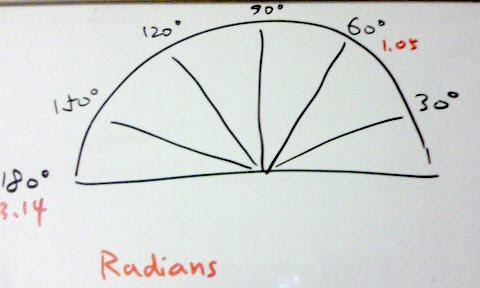 90°
120°
60°
1.05
150°
30°
180°
3.14
Radians